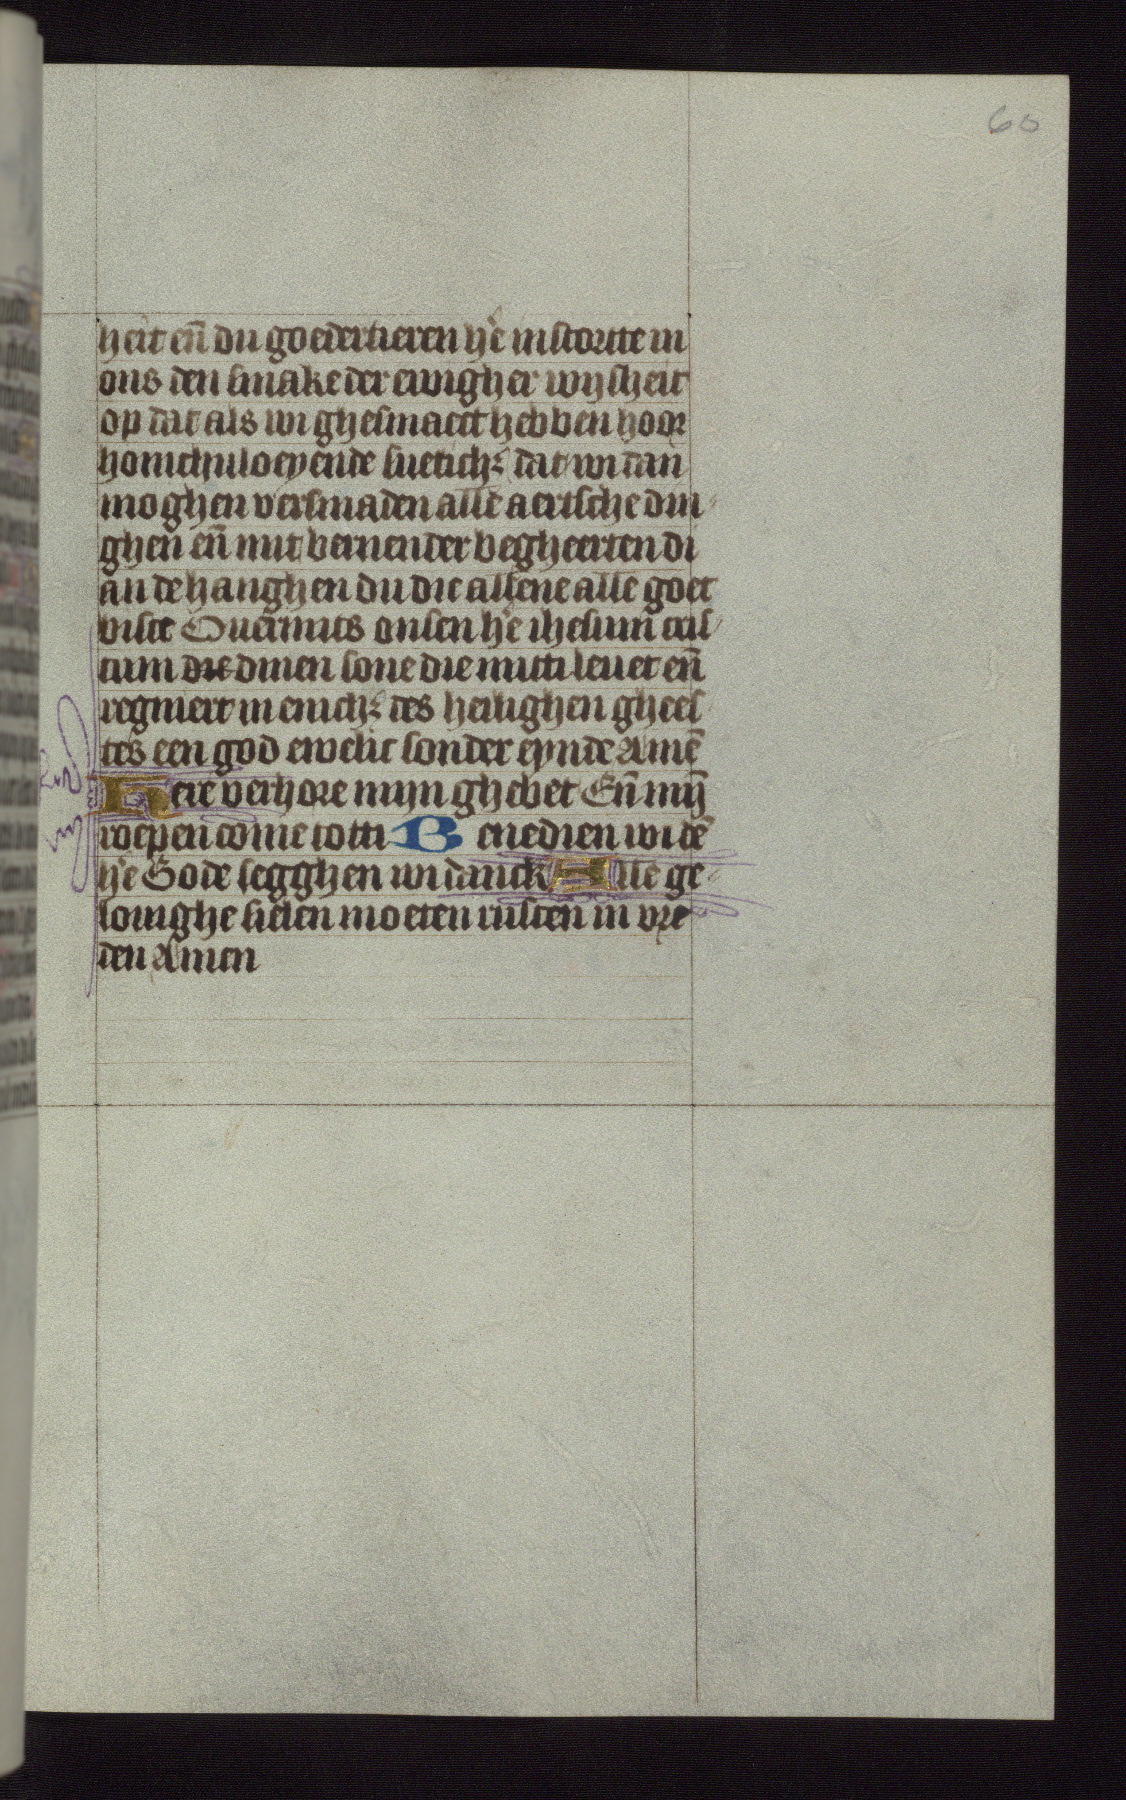 60
heit en̄ du goedertieren he̅ instortte in
ons den smake der ewigher wijsheit
op dat als wi ghesmaect hebben hoor
honichuloeyende sueticht dat wi dan
moghen versmaden alle aertsche din-
ghen en̄ mit bernender begheerten di
an te hanghen du die allene alle goet
biste Ouermits onsen he̅ ihesum cris-
tum die dinen sone die mit ti leuet en̄
regniert in enicht des heilighen ghees
tes een god ewelic sonder eynde Ame̅
Here verhore mijn ghebet En̄ mij̅
roepen come tot ti Benedien wi de̅
he̅ Gode segghen wi danck Alle ge-
louighe sielen moeten rusten in vre
den Amen